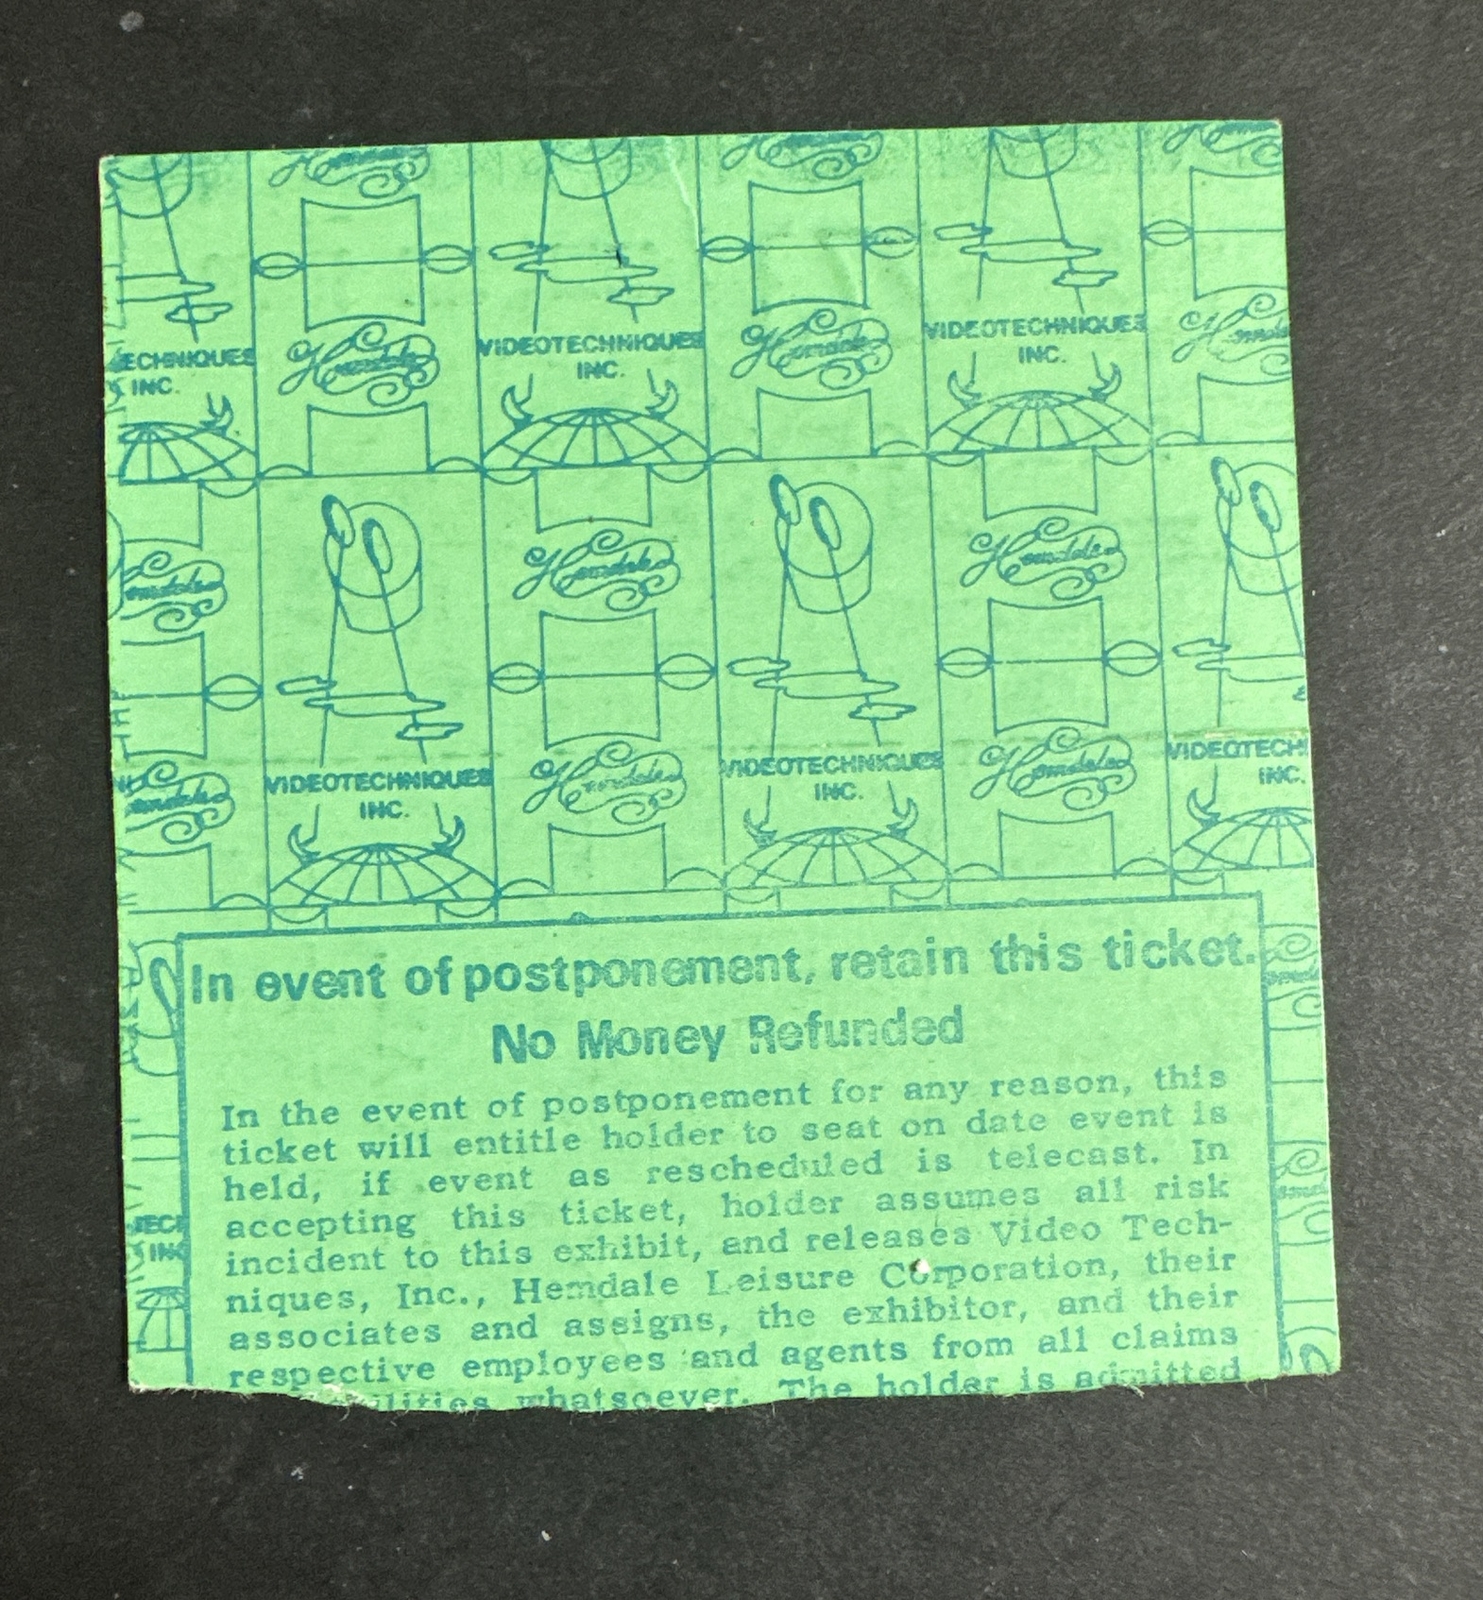 Hemdale
VIDEOTECHNIQUES
INC.
Hemdale
VIDEOTECHNIQUES
INC.
Hemdale
ECHNIQUES
INC.
Hemdale
Hemdale
Hemdale
VIDEOTECHNIQUES
INC.
Hemdale
VIDEOTECHNIQUES
INC.
Hemdale
VIDEOTECH
INC.
In event of postponement, retain this ticket.
No Money Refunded
In the event of postponement for any reason, this
ticket will entitle holder to seat on date event is
held, if event as rescheduled is telecast. In
accepting this ticket, holder assumes all risk
incident to this exhibit, and releases Video Tech-
niques, Inc., Hemdale Leisure Corporation, their
associates and assigns, the exhibitor, and their
respective employees and agents from all claims
whatsoever. The holder is admitted